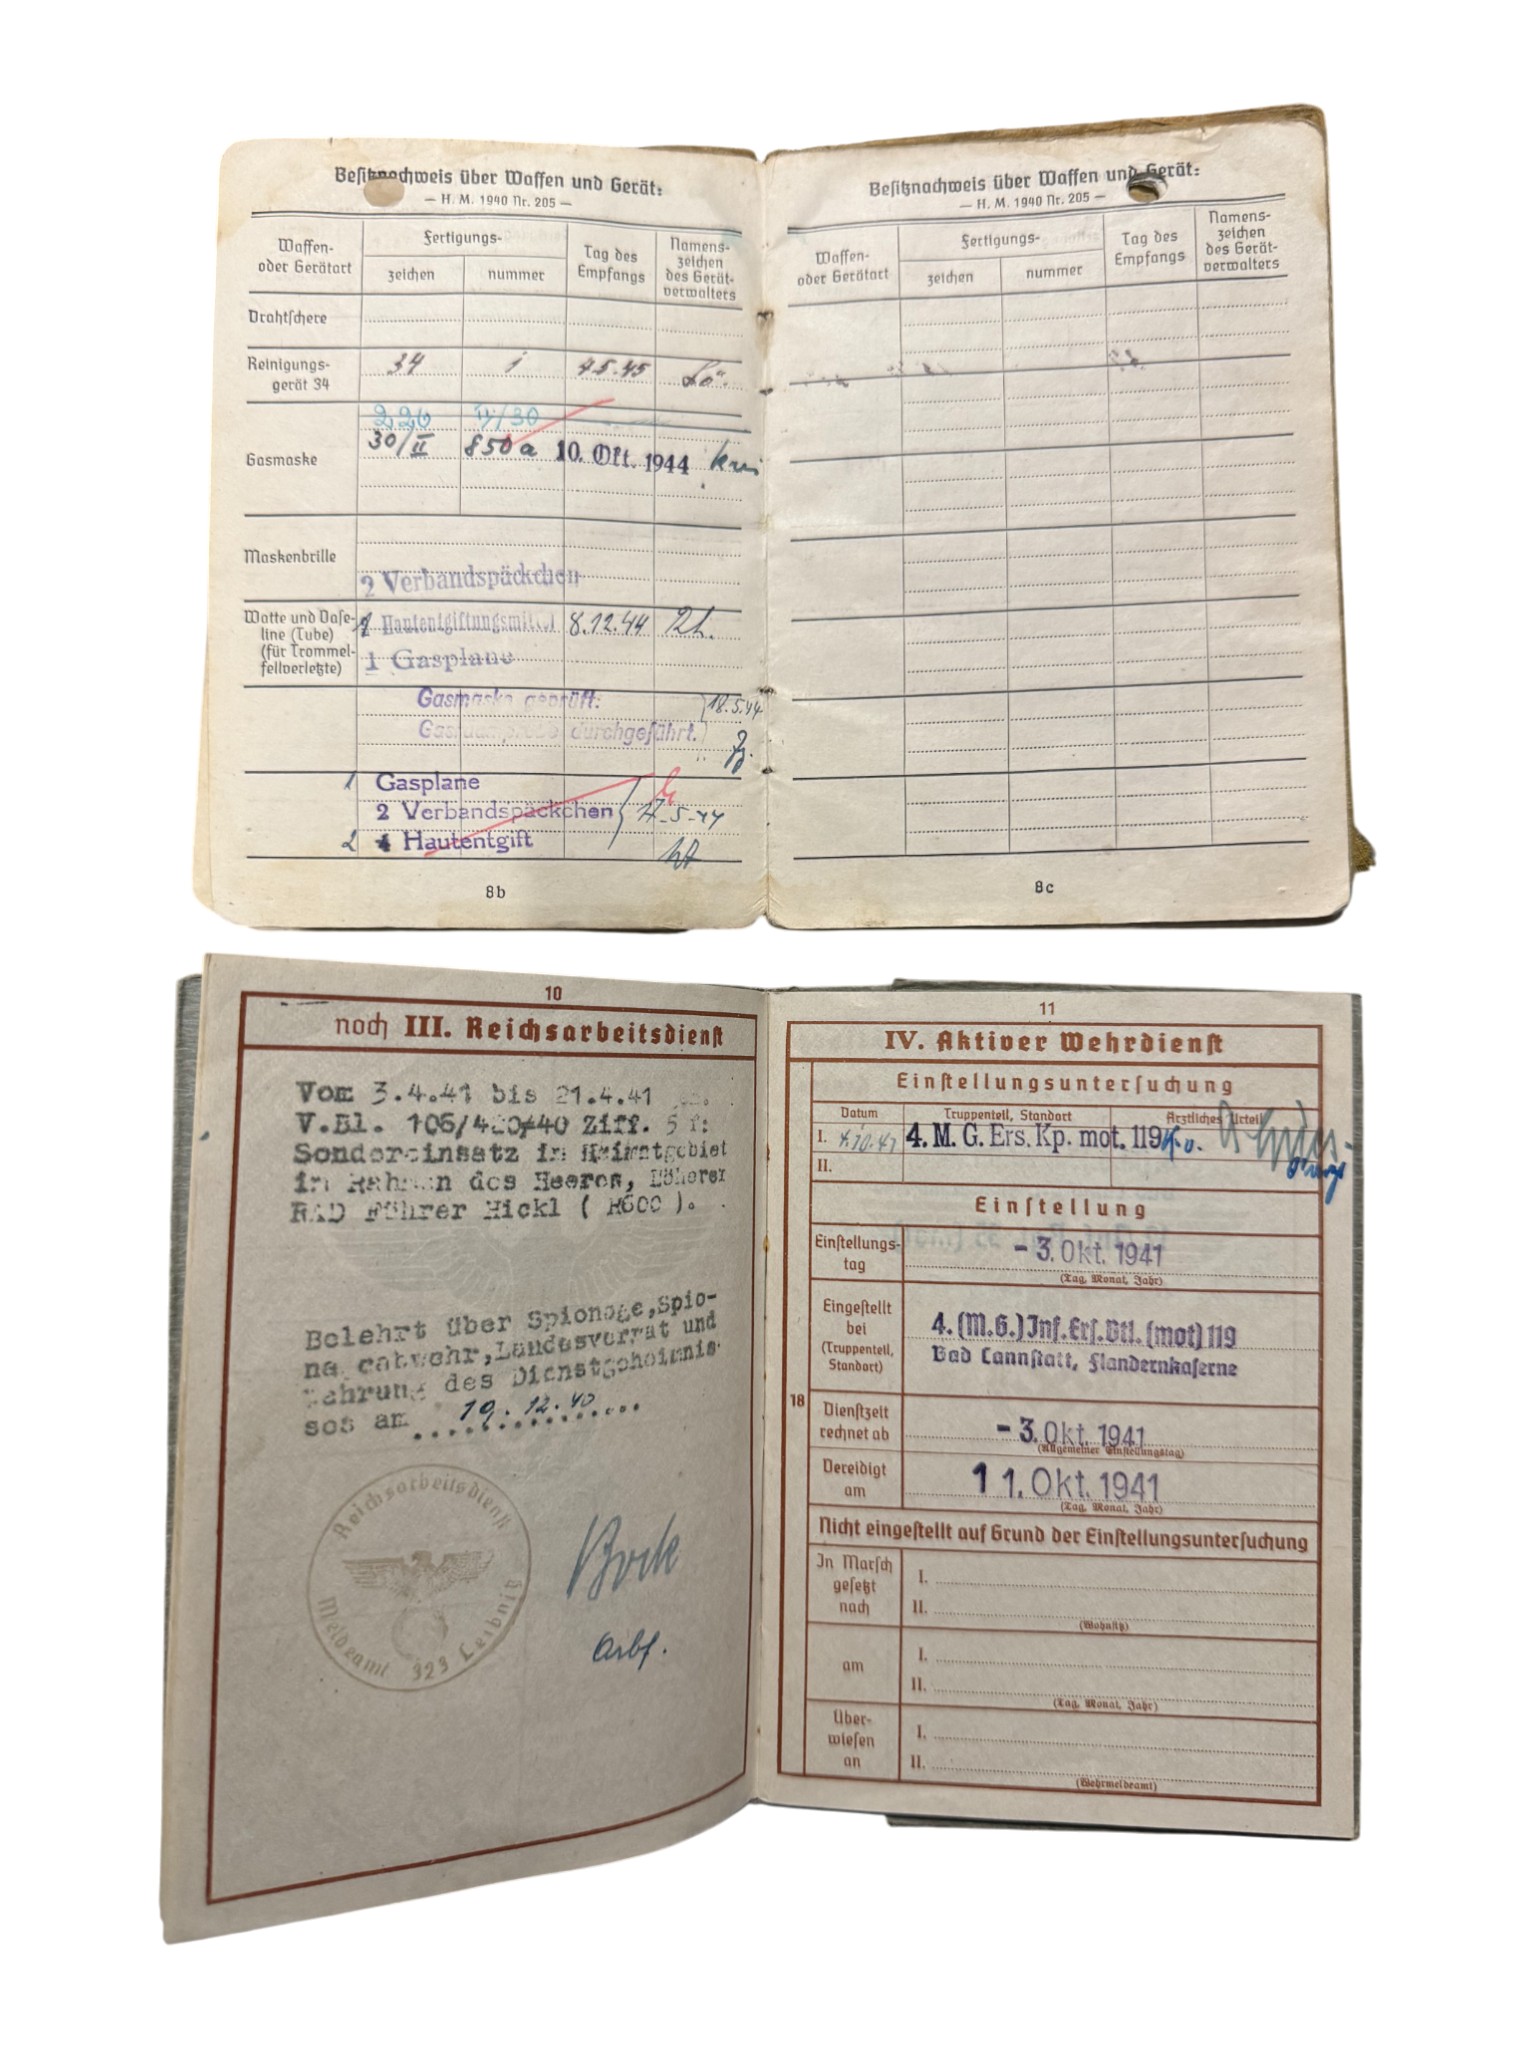 Besitznachweis über Waffen und Gerät:
— H. M. 1940 Nr. 205 —
Waffen-
oder Gerätart
Fertigungs-
zeichen
nummer
Tag des
Empfangs
Namens-
zeichen
des Gerät-
verwalters
Drahtschere
Reinigungs-
gerät 34
34 1 45.45 Lö.
Gasmaske
226 II/30
30/II 850a 10. Okt. 1944
Maskenbrille
2 Verbandspäckchen
Watte und Vase-
line (Tube)
(für Trommel-
fellverletzte)
1 Hautentgiftungsmittel 8.12.44
1 Gasplane
Gasmaske geprüft:
durchgeführt.
18.5.44
1 Gasplane
2 Verbandspäckchen
2 Hautentgift
8b
Besitznachweis über Waffen und Gerät:
— H. M. 1940 Nr. 205 —
Waffen-
oder Gerätart
Fertigungs-
zeichen
nummer
Tag des
Empfangs
Namens-
zeichen
des Gerät-
verwalters
8c
10
noch III. Reichsarbeitsdienst
Vom 3.4.41 bis 21.4.41
V.Bl. 106/420/40 Ziff. 5 f:
Sondereinsatz im Heimatgebiet
im Rahmen des Heeres, Höherer
RAD Führer Hickl ( R600 ).
Belehrt über Spionage,Spio-
na eabwehr,Landesverrat und
ahrung des Dienstgeheimnis-
ses am 19.12.40
Reichsarbeitsdienst
Meldeamt 323 Leibnitz
Bock
Arbf.
11
IV. Aktiver Wehrdienst
Einstellungsuntersuchung
Datum
Truppenteil, Standort
Ärztliches Urteil
I. 4.10.41 4. M. G. Ers. Kp. mot. 119 K.v.
II.
Einstellung
Einstellungs-
tag
- 3. Okt. 1941
(Tag, Monat, Jahr)
Eingestellt
bei
(Truppenteil,
Standort)
4. (M.G.) Inf. Ers. Btl. (mot) 119
Bad Cannstatt, Flandernkaserne
18
Dienstzeit
rechnet ab
- 3. Okt. 1941
(Allgemeiner Einstellungstag)
Vereidigt
am
1 1. Okt. 1941
(Tag, Monat, Jahr)
Nicht eingestellt auf Grund der Einstellungsuntersuchung
In Marsch
gesetzt
nach
I.
II.
(Wohnsitz)
am
I.
II.
(Tag, Monat, Jahr)
Über-
wiesen
an
I.
II.
(Wehrmeldeamt)